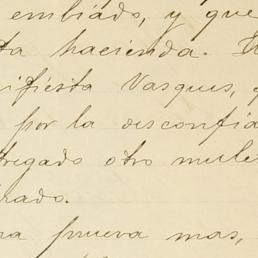 embiado, y que
ta hacienda.
nifiesta Vasques,
por la desconfia
tregado otro mule
rado.
prueva mas,